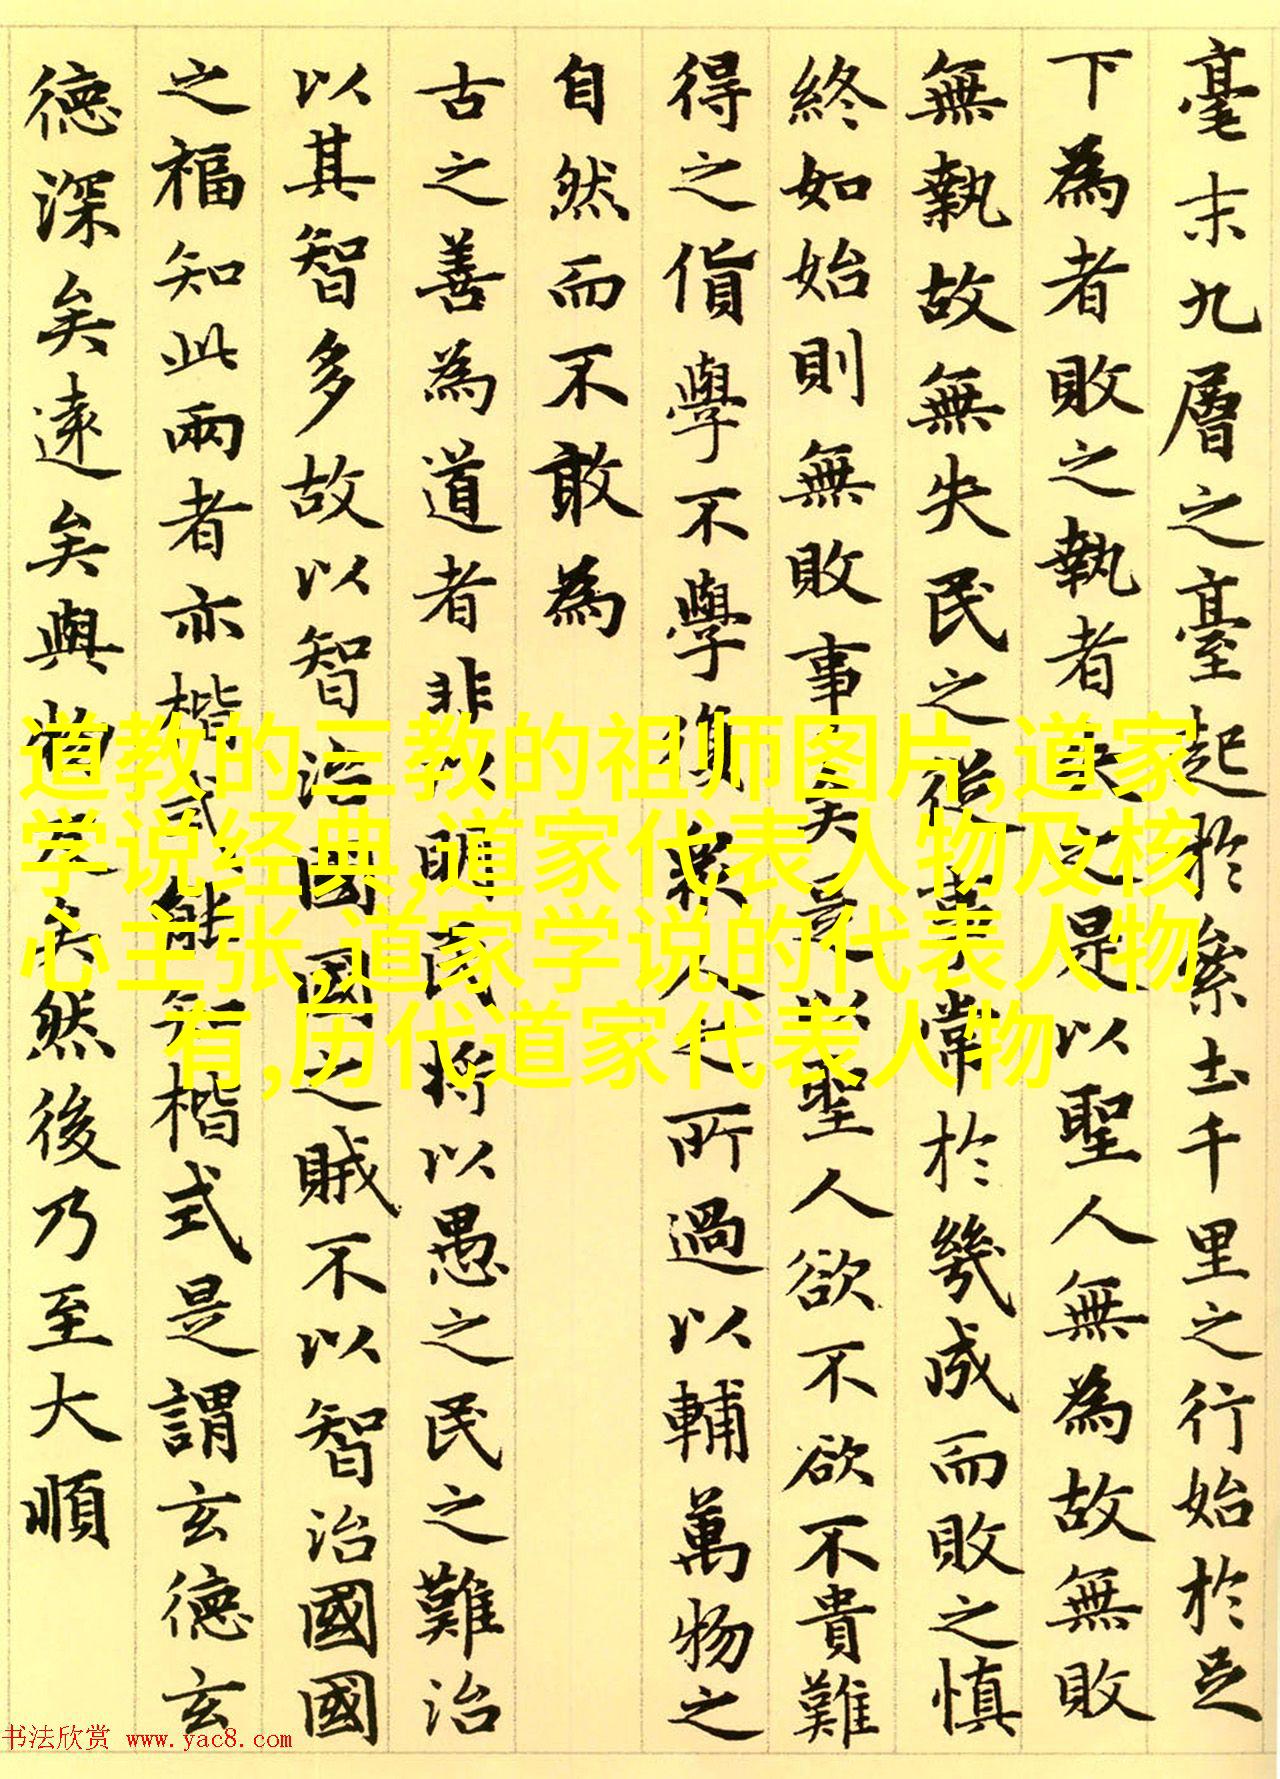 毫末九層之臺起於絫土千里之行始於足
下為者敗之執者失之是以聖人無為故無敗
無執故無失民之從事常於幾成而敗之慎
終如始則無敗事矣是以聖人欲不欲不貴難
得之貨學不學復衆人之所過以輔萬物之
自然而不敢為
古之善為道者非以明民將以愚之民之難治
以其智多故以智治國國之賊不以智治國國
之福知此兩者亦楷式能知楷式是謂玄德玄
德深矣遠矣與物反矣然後乃至大順
道教的三教的祖师图片,道家
学说经典,道家代表人物及核
心主张,道家学说的代表人物
有,历代道家代表人物
书法欣赏 www.yac8.com